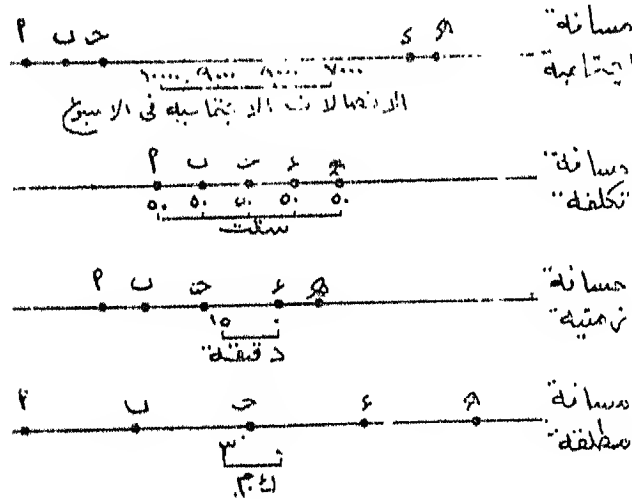 مسافة
اجتماعية
أ ب ج د هـ
١٠٠٠٠ ٩٠٠٠ ٨٠٠٠ ٧٠٠٠
الاتصالات الاجتماعية في الاسبوع
مسافة
تكلفة
أ ب ج د هـ
٥٠ ٥٠ ٥٠ ٥٠ ٥٠
سنت
مسافة
زمنية
أ ب ج د هـ
١٥ ٠
دقيقة
مسافة
مطلقة
أ ب ج د هـ
٣٠ ٠
ك.م